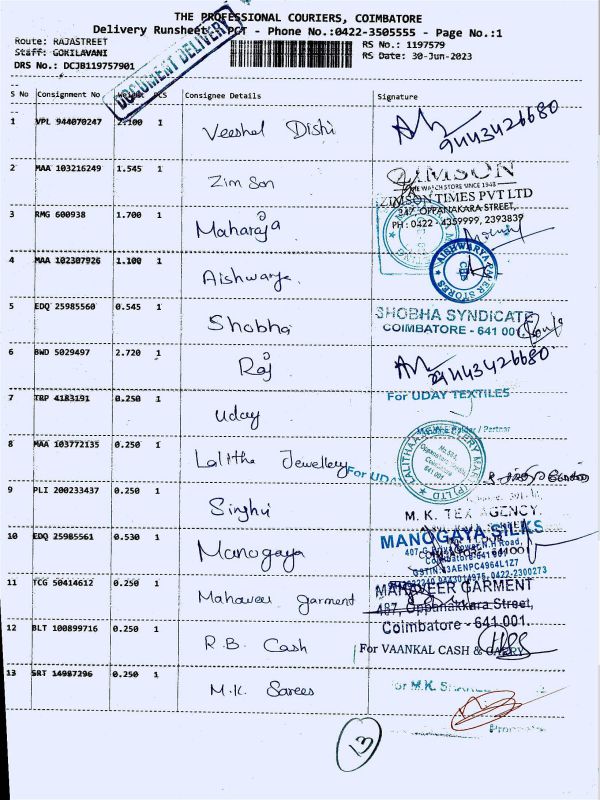 THE PROFESSIONAL COURIERS, COIMBATORE
Delivery Runsheet PCT - Phone No.:0422-3505555 - Page No.:1
Route: RAJASTREET
RS No.: 1197579
Staff: GOKILAVANI
RS Date: 30-Jun-2023
DRS No.: DCJB119757901
DOCUMENT DELIVERY
S No Consignment No Weight PCS Consignee Details Signature
1 VPL 944070247 2.100 1 Veeshal Dishi
9443426680
2 MAA 103216249 1.545 1 Zim Son
ZIMSON
THE WATCH STORE SINCE 1948
ZIMSON TIMES PVT LTD
347, OPPANAKARA STREET,
PH : 0422 - 4359999, 2393839
3 RMG 600938 1.700 1 Maharaja
4 MAA 102307926 1.100 1 Aishwarya
AISHWARYA PAPER STORES
5 EDQ 25985560 0.545 1 Shobha
SHOBHA SYNDICATE
COIMBATORE - 641 001
6 BWD 5029497 2.720 1 Raj
9443426680
7 TRP 4183191 0.250 1 Uday
For UDAY TEXTILES
/ Partner
8 MAA 103772135 0.250 1 Lalitha Jewellery
For UDAY
LALITHAA JEWELLERY MART (P) LTD
9 PLI 200233437 0.250 1 Singhvi
M. K. TEX AGENCY.
10 EDQ 25985561 0.530 1 Manogaya
MANOGAYA SILKS
Coimbatore-641 001
0422-2300273
11 TCG 50414612 0.250 1 Mahaveer garment
MAHAVEER GARMENT
487, Oppanakkara Street,
Coimbatore - 641 001.
12 BLT 100899716 0.250 1 R.B. Cash
For VAANKAL CASH & CARRY
13 SRT 14987296 0.250 1 M.K. Sarees
For M.K.
13